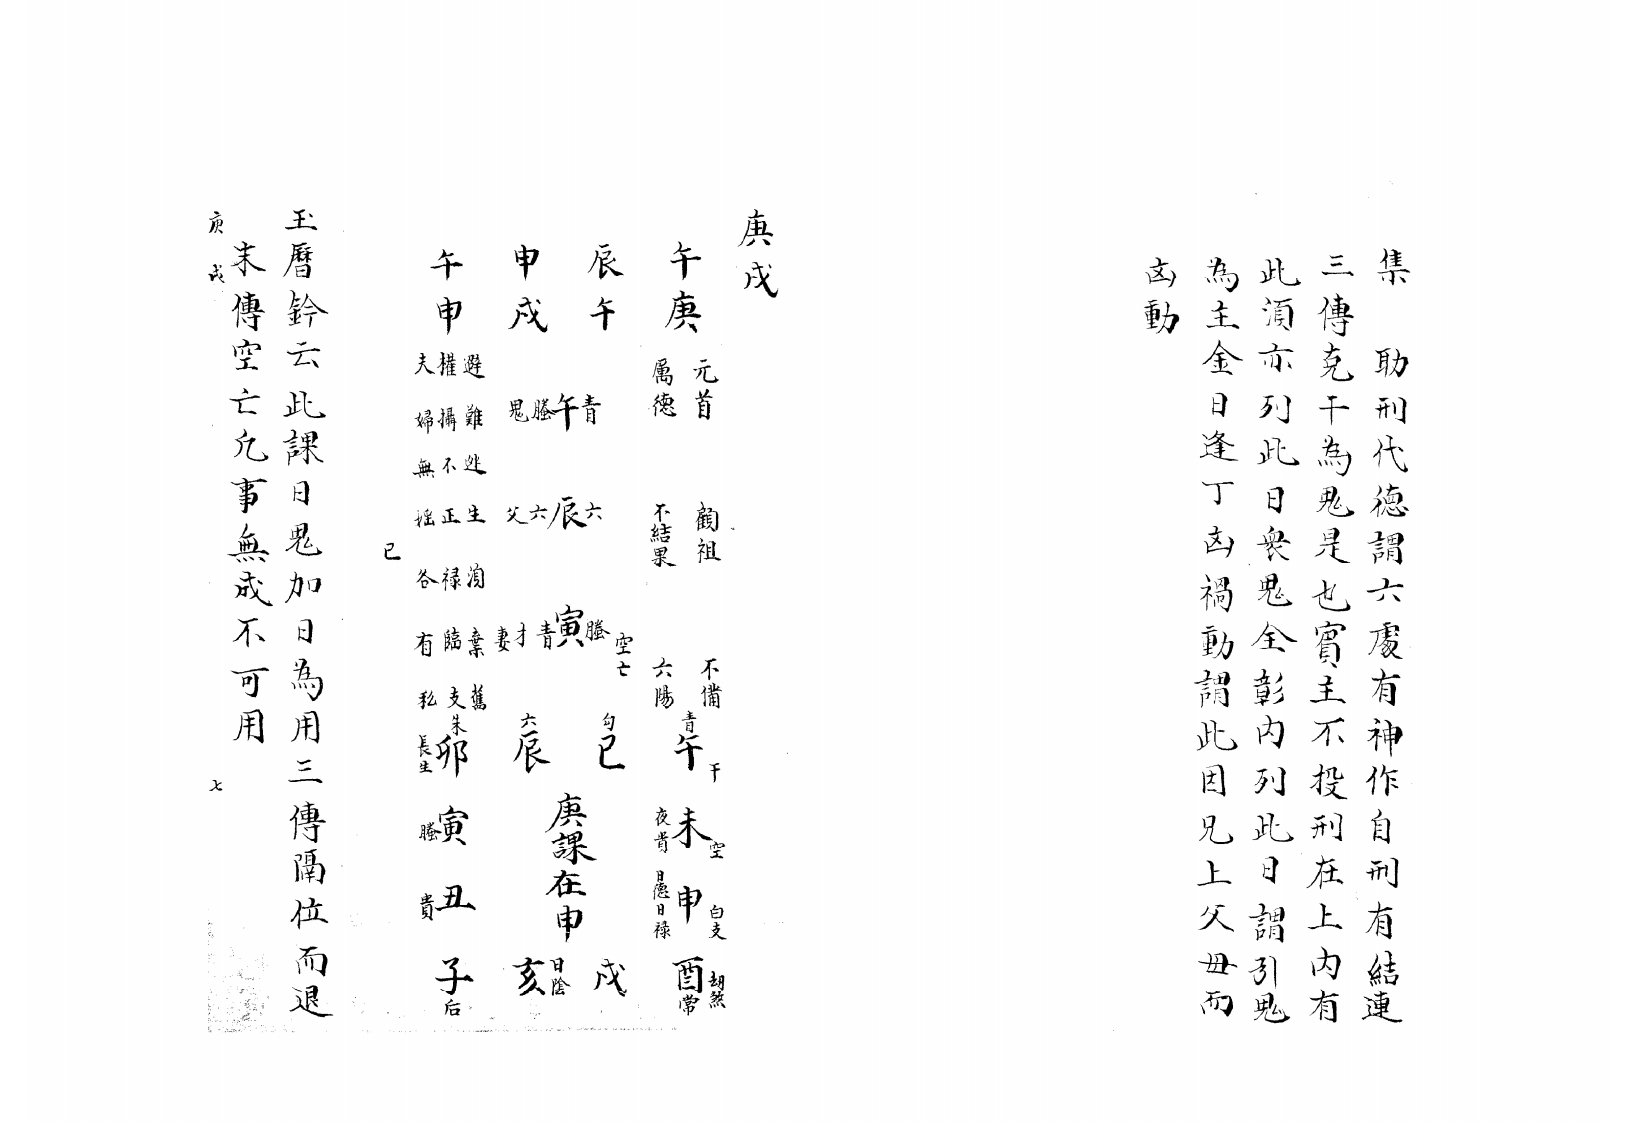 集　助刑代德謂六處有神作自刑有結連
三傳克干為鬼是也賓主不投刑在上內有
此須亦列此日衆鬼全彰內列此日謂引鬼
為主金日逢丁凶禍動謂此因兄上父母而
凶動
庚戌
午庚
辰午
申戌
午申
元首
厲德
顧祖
不結果
不備
六陽
青午
螣鬼
六辰
六父
螣寅
青才妻
空亡
避難逃生須棄舊
權攝不正祿臨支
夫婦無搖各有私
巳
青午干
勾巳
六辰
朱卯長生
未空夜貴
寅螣
申白支日德日祿
丑貴
酉常劫煞
戌
亥日陰
子后
庚課在申
玉曆鈐云此課日鬼加日為用三傳隔位而退
末傳空亡凡事無成不可用
庚戌　七